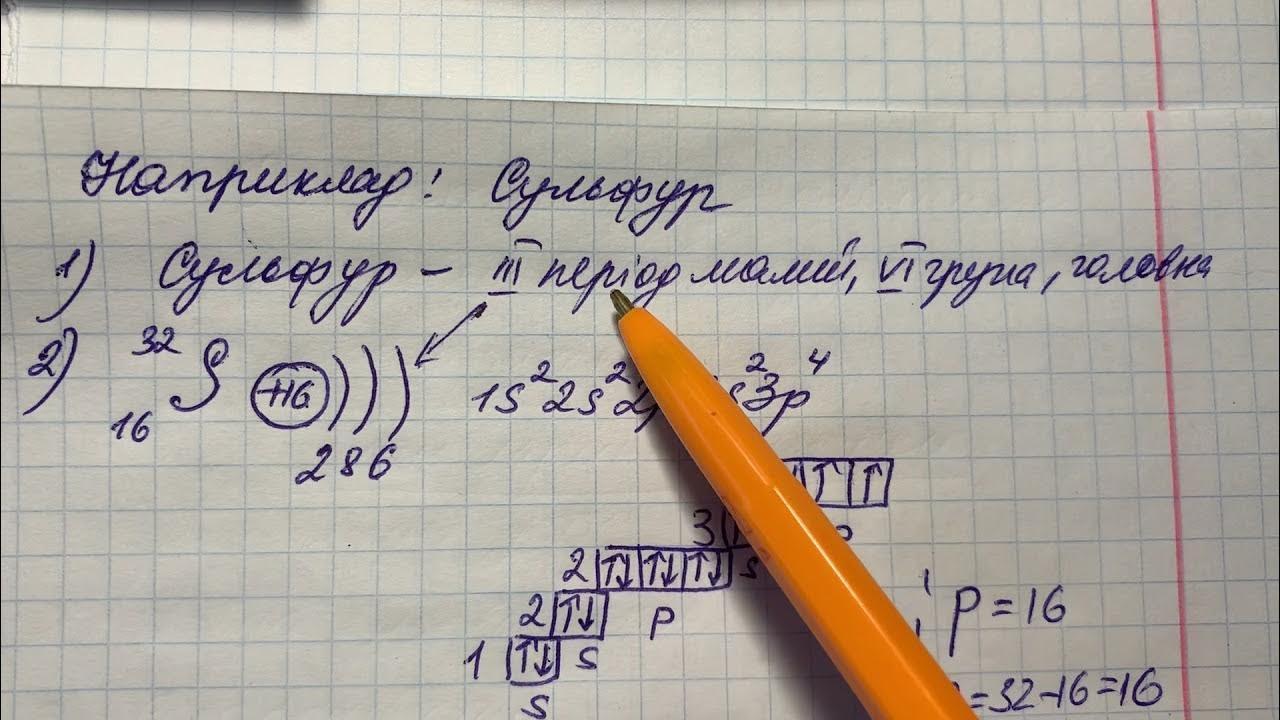 Наприклад: Сульфур
1) Сульфур – III період малий, VI група, головна
2) ³²₁₆S (+16) ) ) ) 1s²2s²2p s²3p⁴
2 8 6
↑ ↑
3 p
2 ↑↓ ↑↓ ↑↓ s
2 ↑↓ p p = 16
1 ↑↓ s
s =32-16=16